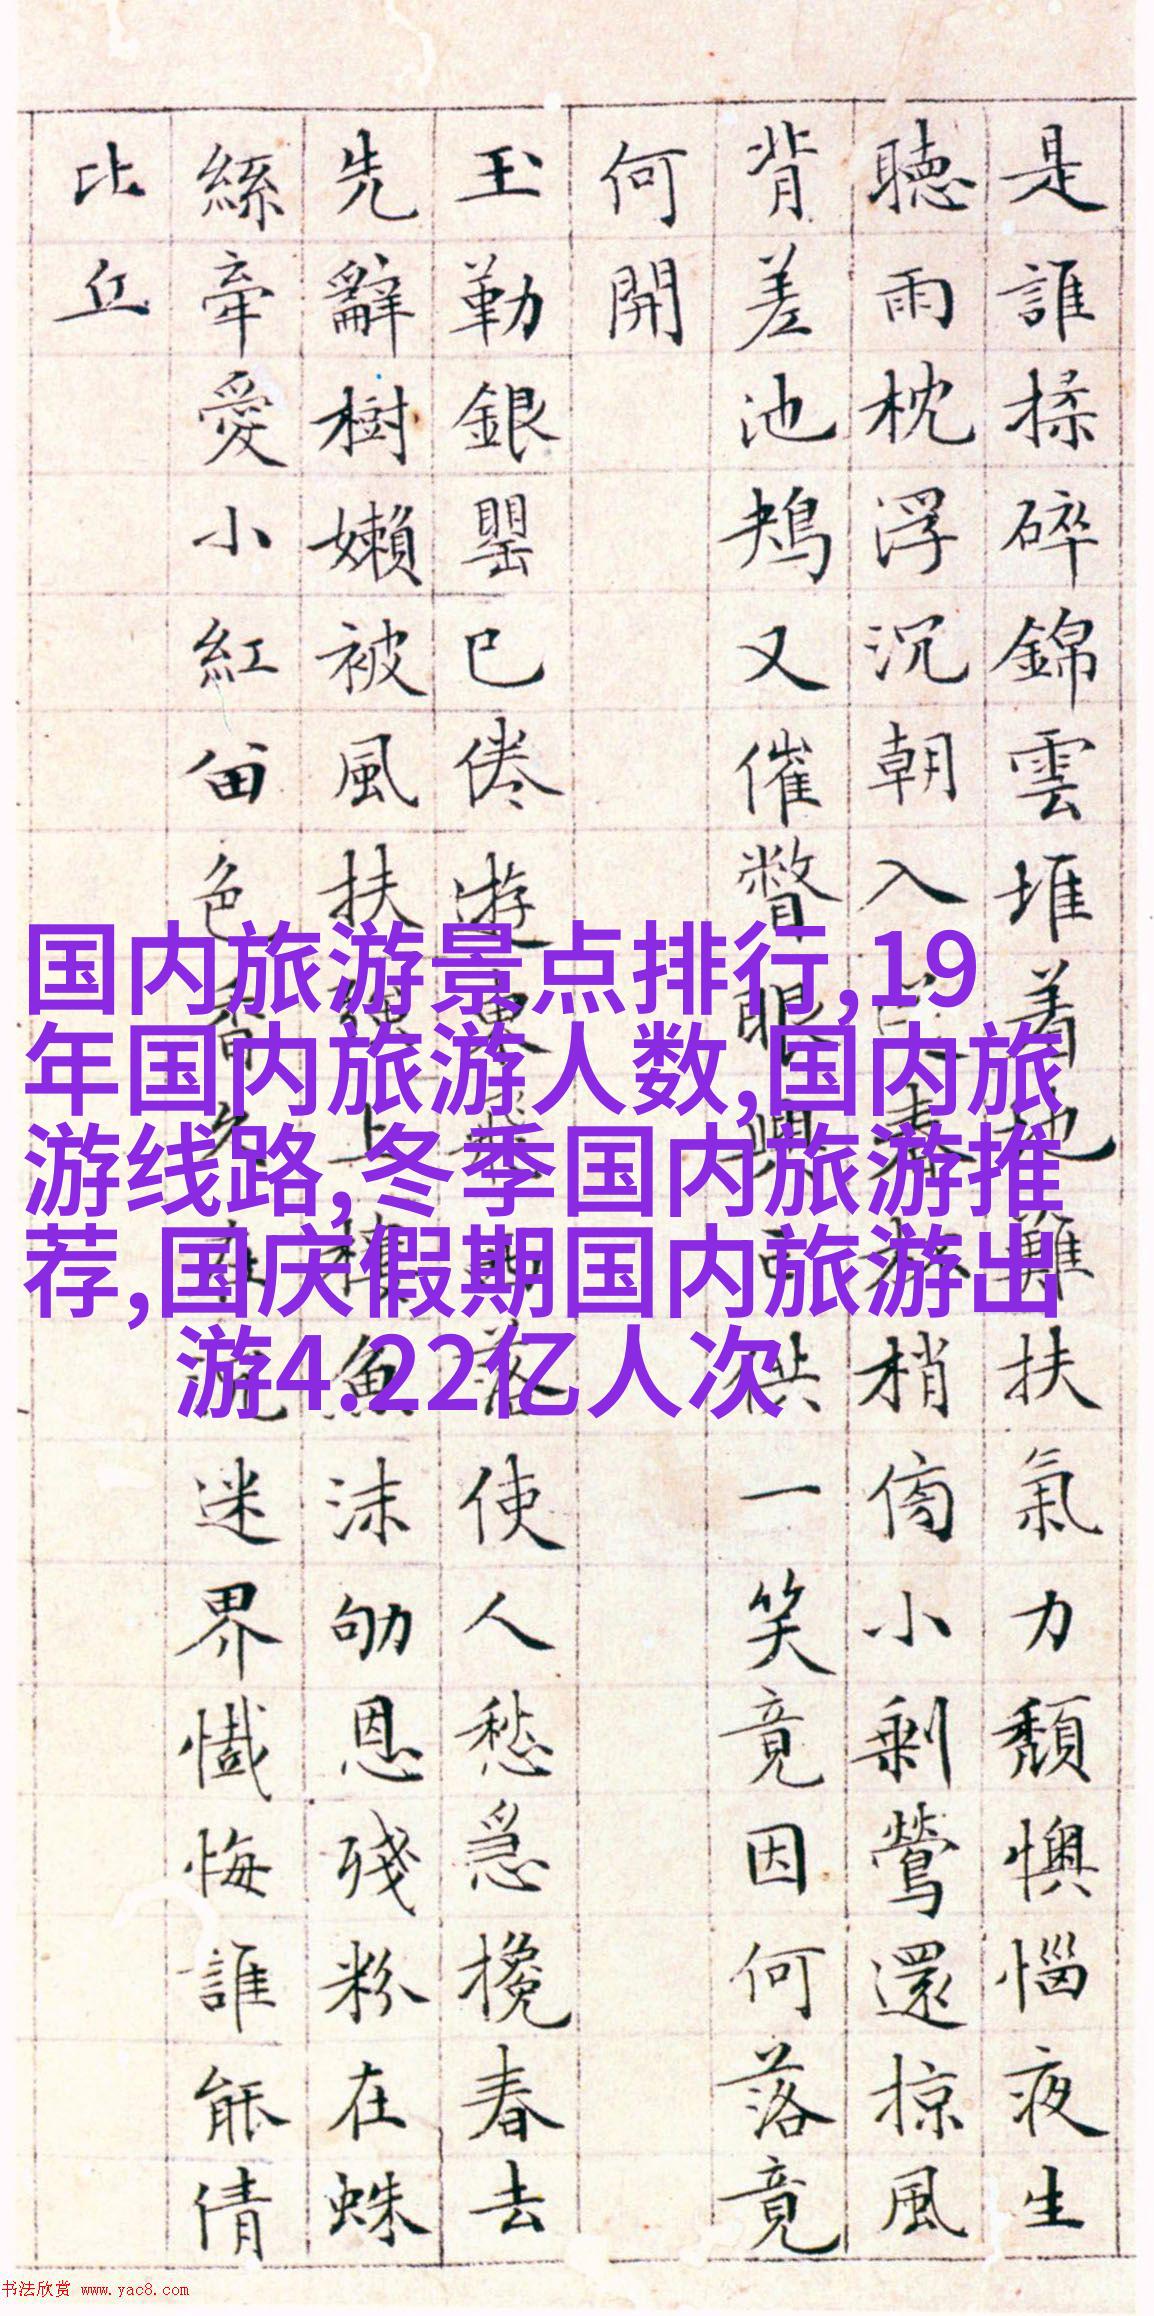 是誰揉碎錦雲堆着地難扶氣力頹懊惱夜生
聽雨枕浮沉朝入春梢小剩鶯還掠風
背差池鴂又催瞥眼興亡供一笑竟因何落竟
何開
玉勒銀罌已倦遊東飛西落使人愁急攙春去
先辭樹嬾被風扶強上樓魚沫劬恩殘粉在蛛
絲牽愛小紅留色香久在沉迷界懺悔誰能倩
比丘
国内旅游景点排行,19
年国内旅游人数,国内旅
游线路,冬季国内旅游推
荐,国庆假期国内旅游出
游4.22亿人次
书法欣赏 www.yac8.com